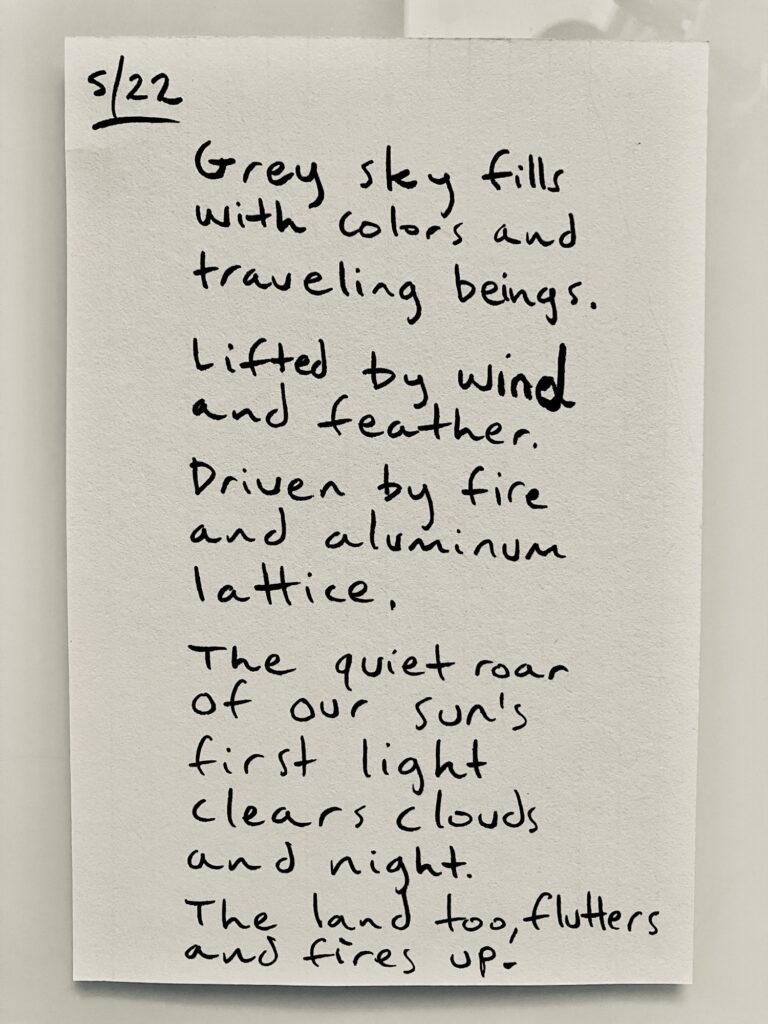 5/22
Grey sky fills
with colors and
traveling beings.
Lifted by wind
and feather.
Driven by fire
and aluminum
lattice.
The quiet roar
of our sun's
first light
clears clouds
and night.
The land too, flutters
and fires up.